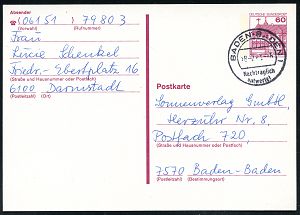 Absender
(06151) 79803
(Vorwahl) (Rufnummer)
Frau
Schenkel
Friedr.-Ebertplatz 16
(Straße und Hausnummer oder Postfach)
6100 Darmstadt
(Postleitzahl) (Ort)
DEUTSCHE BUNDESPOST
60
BADEN-BADEN
Nachträglich
entwertet
Postkarte
Sonnenverlag GmbH,
Nr. 8,
Postfach 720,
(Straße und Hausnummer oder Postfach)
7570 Baden-Baden
(Postleitzahl) (Bestimmungsort)